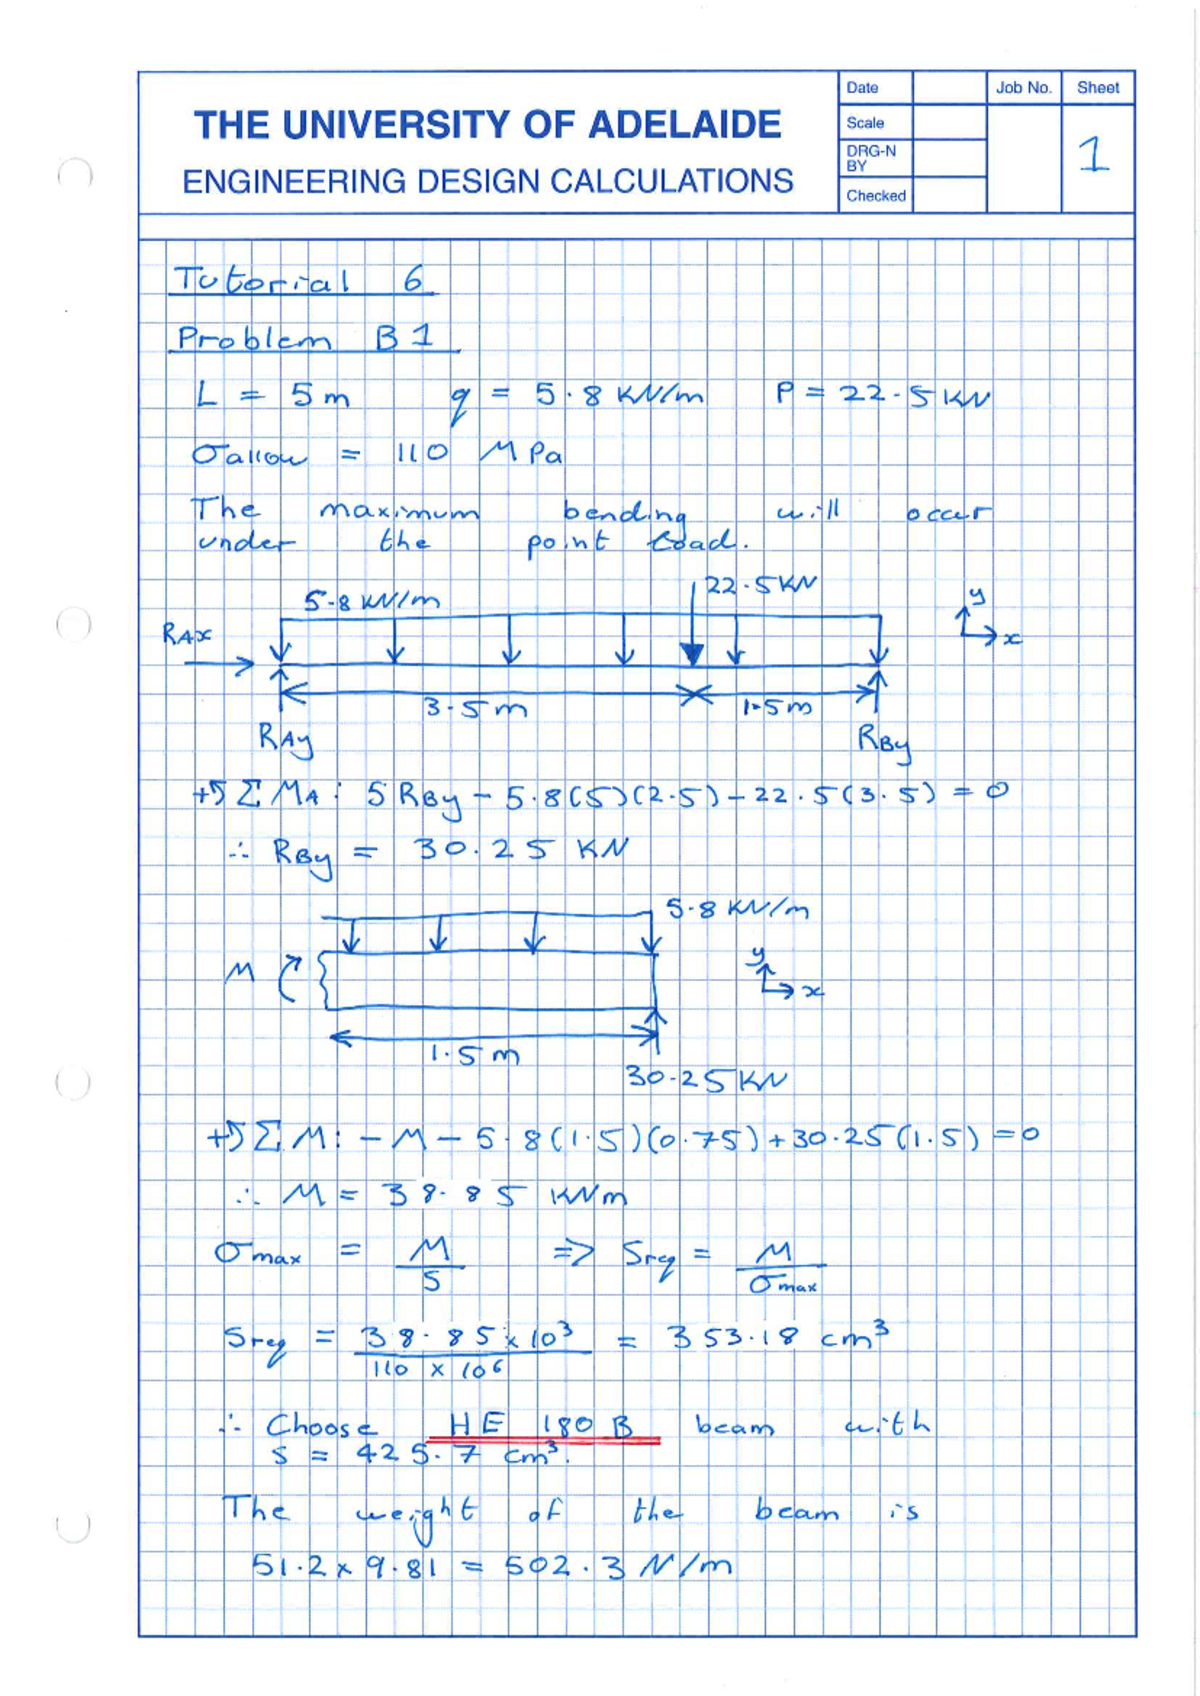 THE UNIVERSITY OF ADELAIDE
ENGINEERING DESIGN CALCULATIONS
Date
Scale
DRG-N BY
Checked
Job No.
Sheet
1
Tutorial 6
Problem B1
L = 5m q = 5.8 KN/m P = 22.5 KN
σallow = 110 MPa
The maximum bending will occur
under the point load.
5.8 KN/m
22.5 KN
RAx
y
x
3.5m
1.5m
RAy
RBy
+↺ Σ MA: 5 RBy - 5.8(5)(2.5) - 22.5(3.5) = 0
∴ RBy = 30.25 KN
5.8 KN/m
M
y
x
1.5 m
30.25 KN
+↺ Σ M: - M - 5.8(1.5)(0.75) + 30.25(1.5) = 0
∴ M = 38.85 KNm
σmax = M/S => Sreq = M/σmax
Sreq = 38.85 x 10³ / 110 x 10⁶ = 353.18 cm³
∴ Choose HE 180 B beam with
S = 425.7 cm³.
The weight of the beam is
51.2 x 9.81 = 502.3 N/m